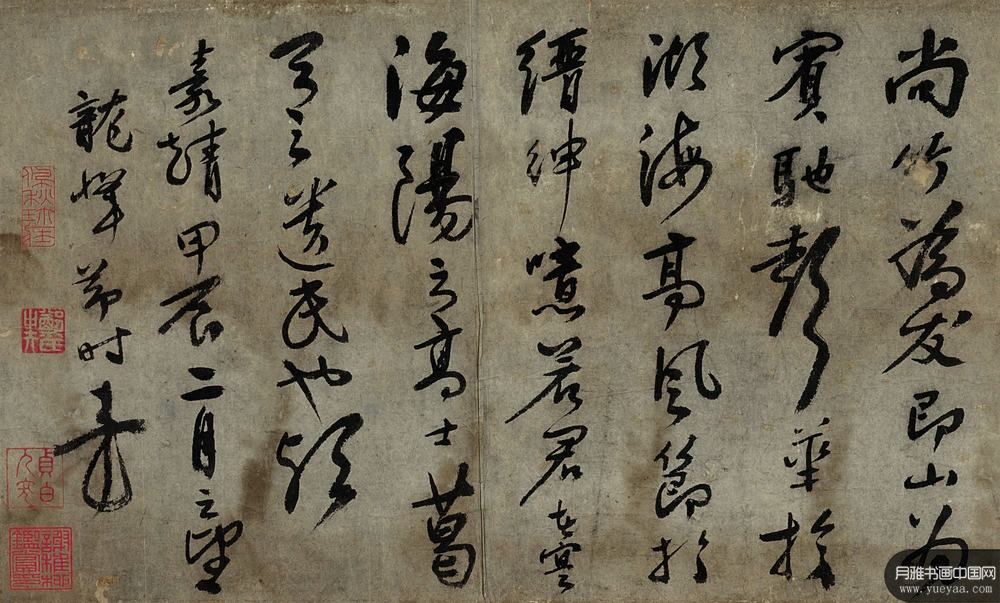 尚竹為友即山為
賓馳聲華於
湖海高風節於
縉紳噫若君者寔
海陽之高士葛
天之遺民也歟
嘉靖甲辰二月之望
龍
月雅书画中国网
www.yueyaa.com